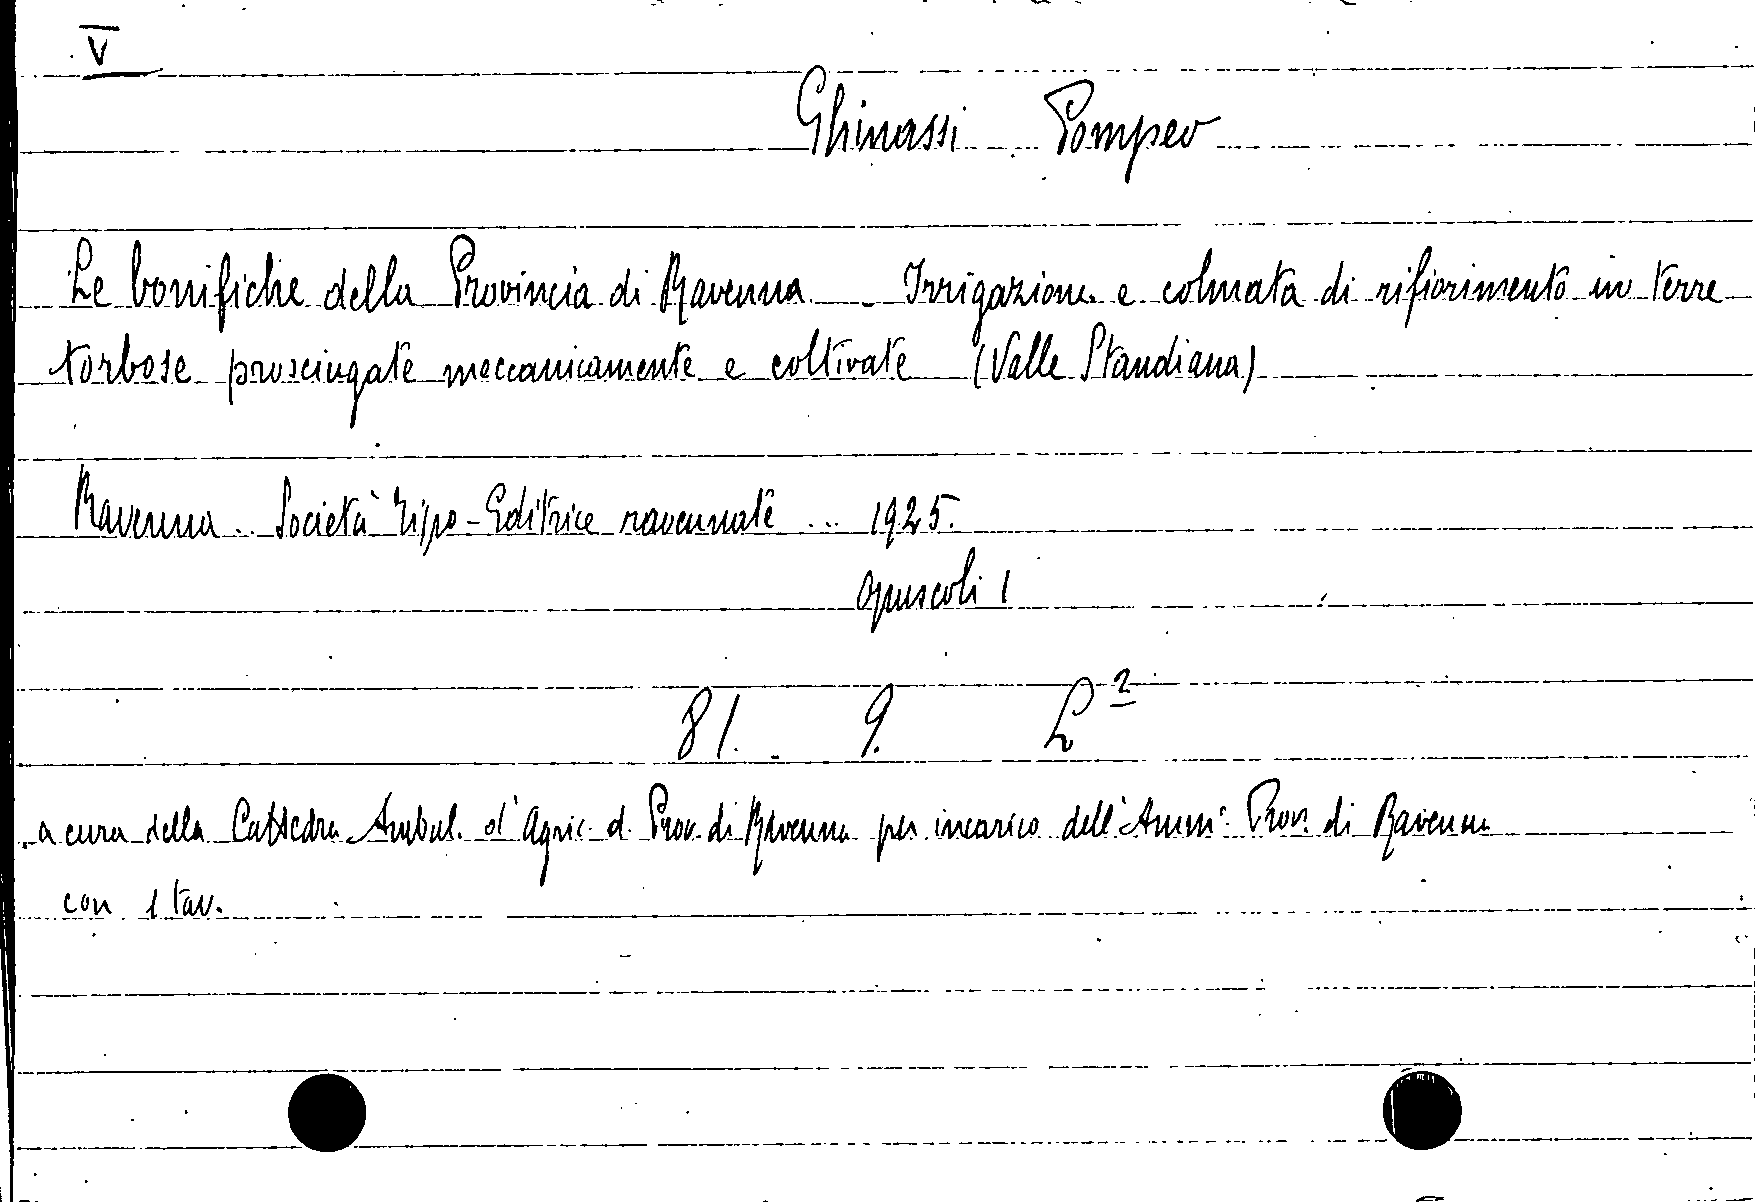 V
Ghinassi Pompeo
Le bonifiche della Provincia di Ravenna - Irrigazione e colmata di rifiorimento in terre
torbose prosciugate meccanicamente e coltivate (Valle Standiana)
Ravenna - Società Tipo-Editrice ravennate - 1925.
opuscoli 1
81. 9. L²
a cura della Cattedra Ambul. d'Agric. d. Prov. di Ravenna per incarico dell'Amm. Prov. di Ravenna
con 1 tav.